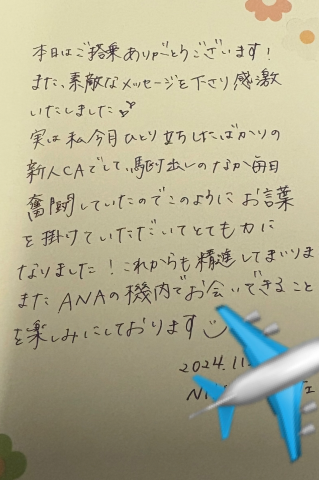 本日はご搭乗ありがとうございます!
また、素敵なメッセージを下さり感激
いたしました
実は私今月ひとり立ちしたばかりの
新人CAでして、駆け出しのなか毎日
奮闘していたのでこのようにお言葉
を掛けていただいてとても力に
なりました!これからも精進してまいります
またANAの機内でお会いできること
を楽しみにしております
2024.11